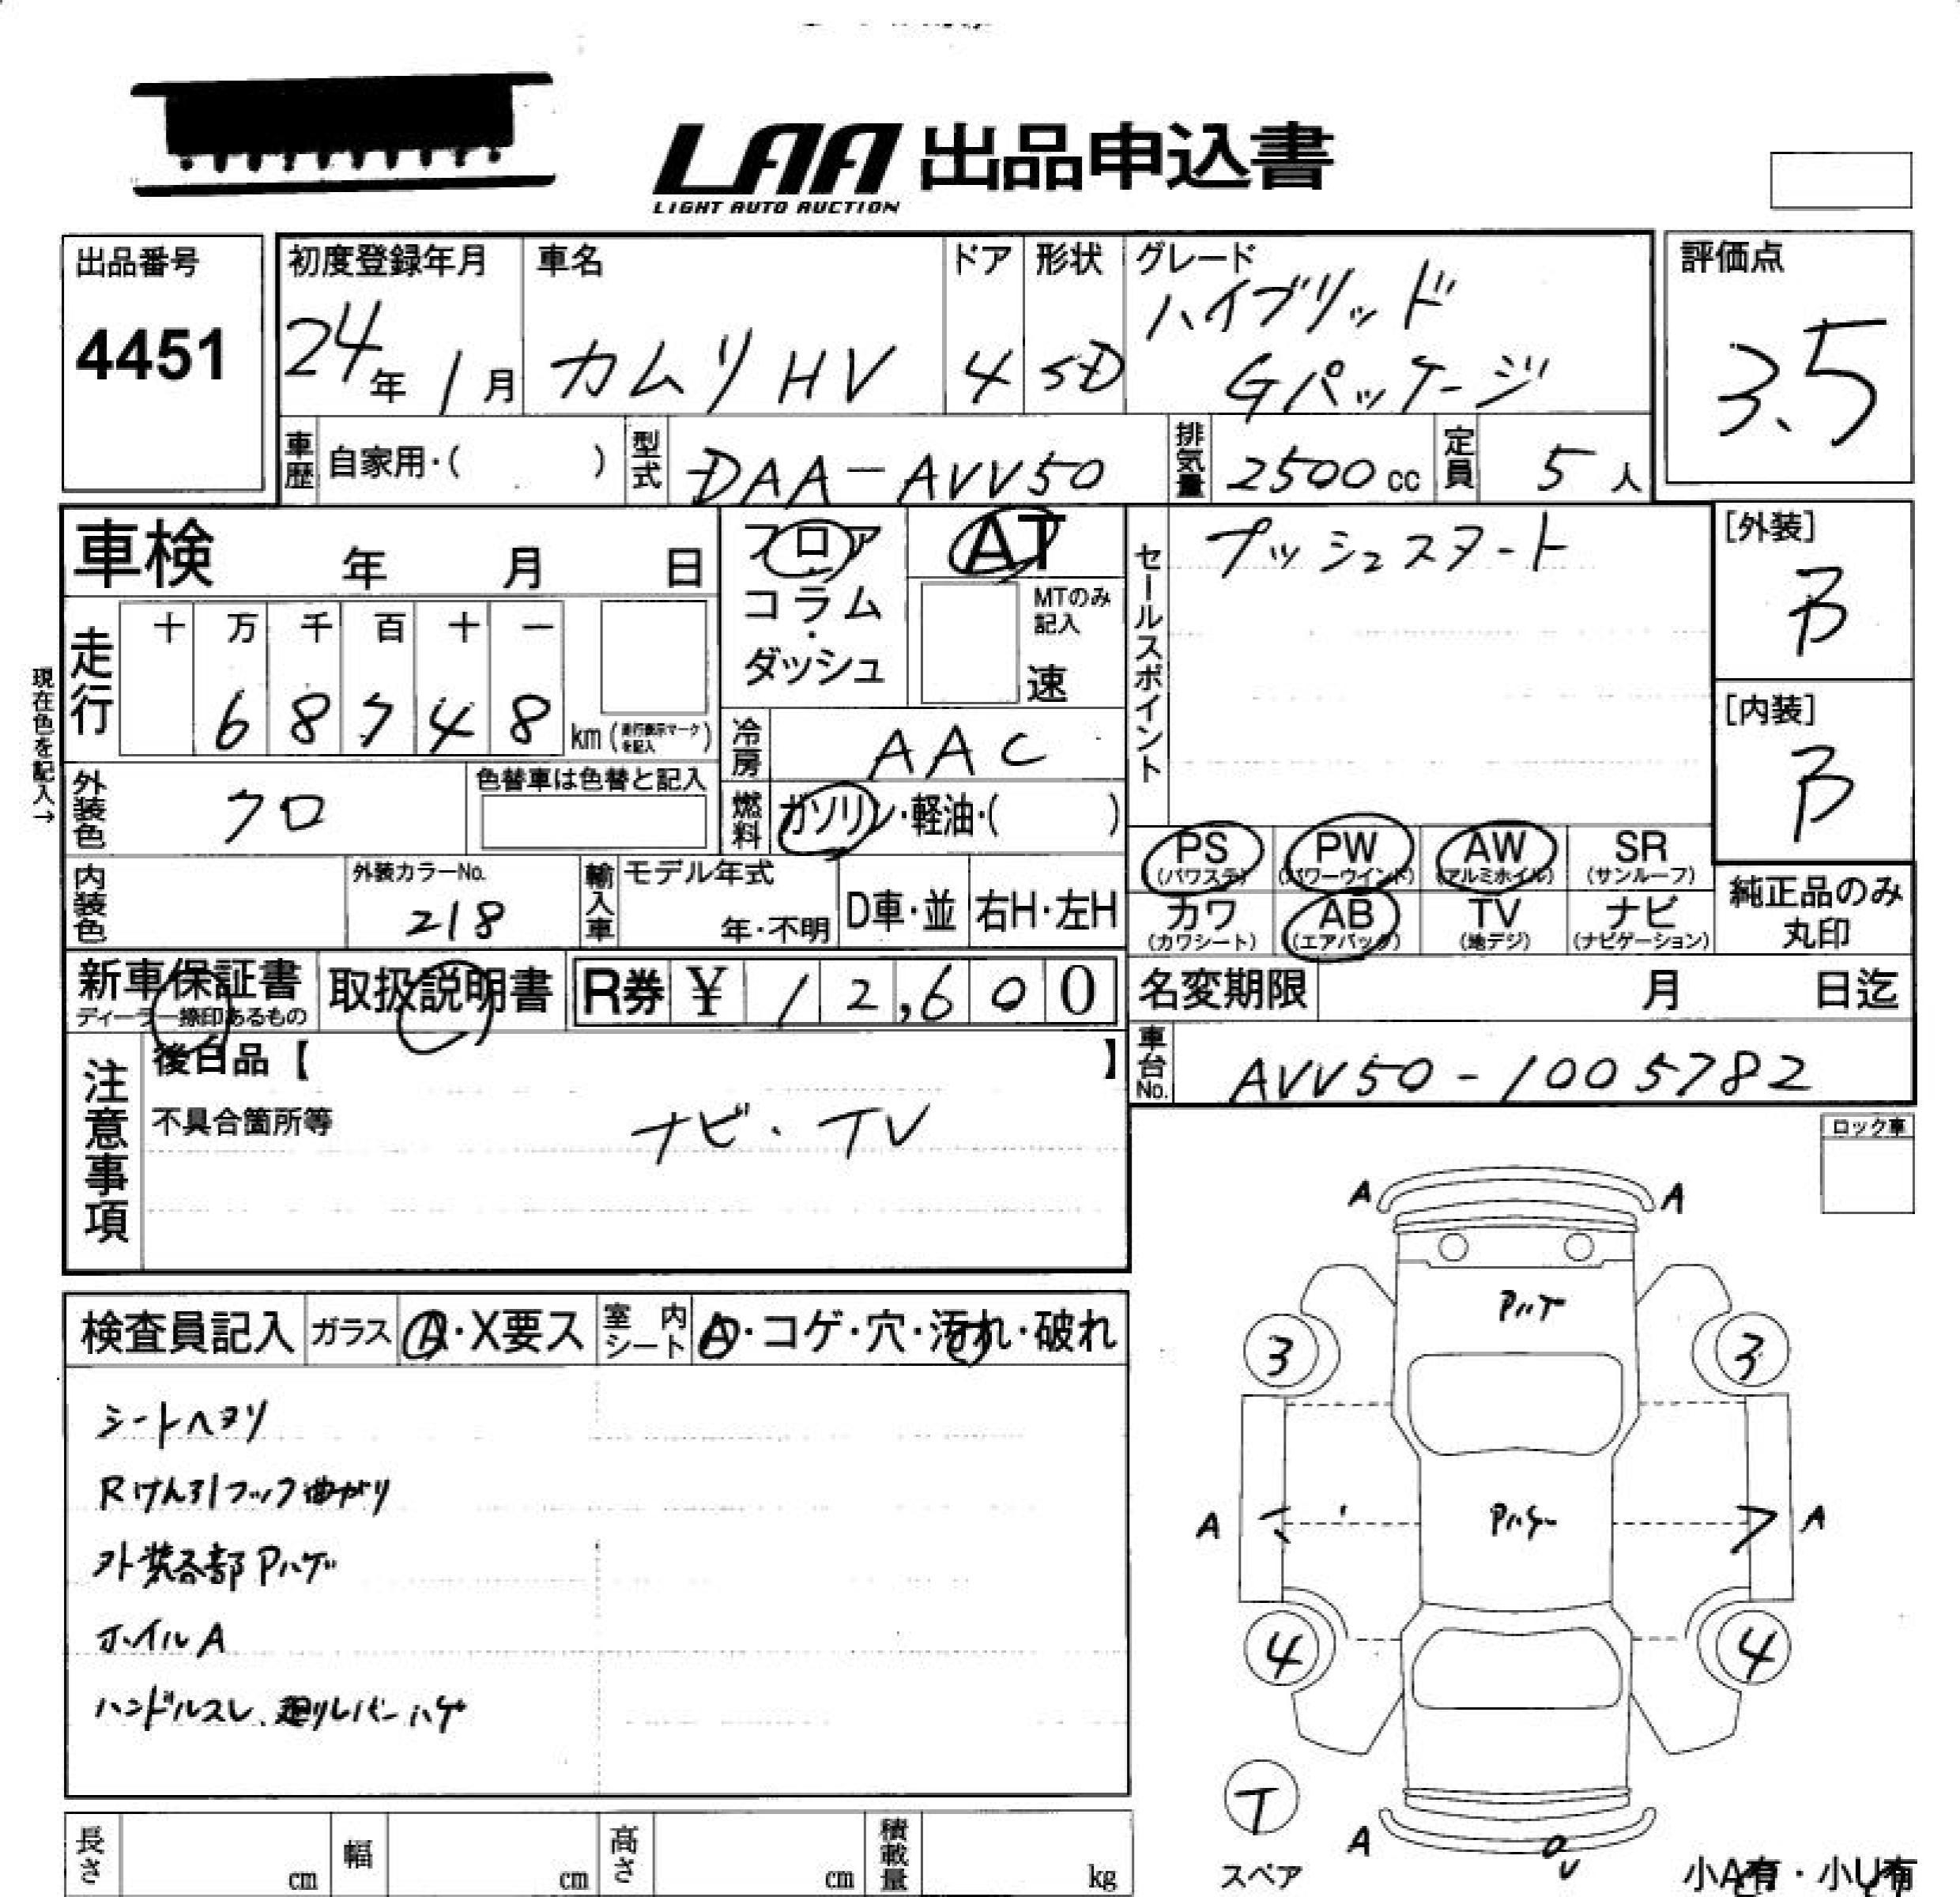 LAA 出品申込書
LIGHT AUTO AUCTION
出品番号
4451
初度登録年月
24年 1月
車名
カムリ HV
ドア
4
形状
SD
グレード
ハイブリッド
Gパッケージ
評価点
3.5
車歴 自家用・( )
型式 DAA-AVV50
排気量 2500 cc
定員 5人
車検 年 月 日
フロア
・
コラム
・
ダッシュ
AT
MTのみ
記入
速
セールスポイント
プッシュスタート
[外装]
B
[内装]
B
現在色を記入→
走行
十 万 千 百 十 一
6 8 7 4 8 km (走行表示マークを記入)
冷房 AAC
外装色 クロ
色替車は色替と記入
燃料 ガソリン・軽油・( )
PS (パワステ)
PW (パワーウインド)
AW (アルミホイル)
SR (サンルーフ)
カワ (カワシート)
AB (エアバック)
TV (地デジ)
ナビ (ナビゲーション)
純正品のみ
丸印
内装色
外装カラーNo.
218
輸入車
モデル年式
年・不明
D車・並
右H・左H
新車保証書
ディーラー捺印あるもの
取扱説明書
R券 ¥ 12,600
名変期限 月 日迄
車台No. AVV50-1005782
注意事項
後日品【 】
不具合箇所等
ナビ・TV
ロック車
検査員記入
ガラス A・X要ス
室内シート A・コゲ・穴・汚れ・破れ
シートヘタリ
Rけん引フック曲がり
外装各部Pハゲ
ホイルA
ハンドルスレ、廻りレバーハゲ
A A
Pハゲ
3 3
A Pハゲ A
4 4
T
スペア
A
小A有・小U有
長さ cm
幅 cm
高さ cm
積載量 kg